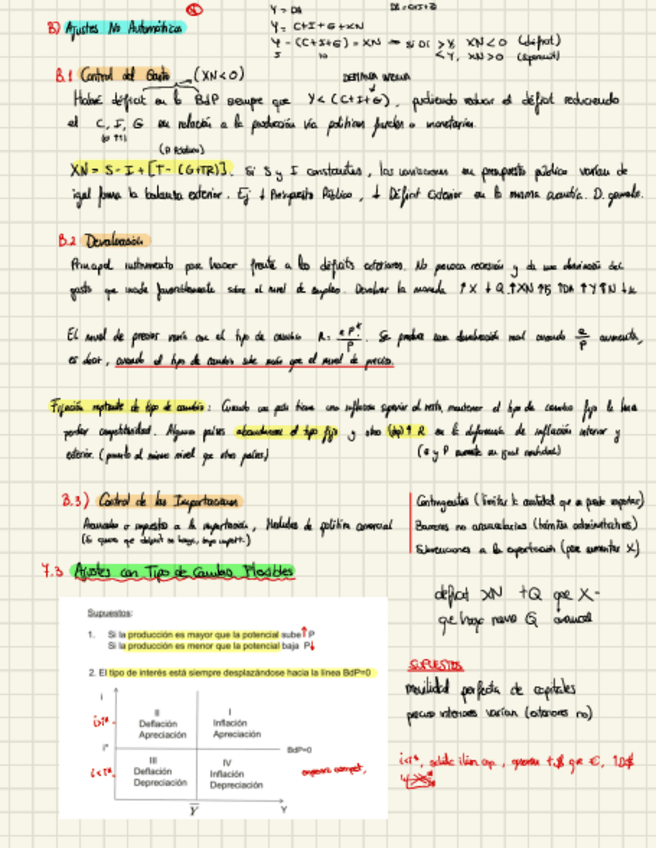 Y = DA
B) Ajustes No Automáticos
Y = C+I+G+XN
Y - (C+I+G) = XN → si DI > Y, XN<0 (déficit)
< Y, XN>0 (superávit)
B.1 Control del Gasto (XN<0)
DEMANDA INTERNA
Habrá déficit en la BdP siempre que Y < (C+I+G), pudiendo reducir el déficit reduciendo
el C, I, G en relación a la producción vía políticas fiscales o monetarias.
XN = S - I + [T - (G+TR)]. Si S y I constantes, las variaciones en presupuesto público varían de
igual forma la balanza exterior. Ej: ↓ Presupuesto Público, ↓ Déficit Exterior en la misma cuantía. D. gemelo.
B.2 Devaluación
Principal instrumento para hacer frente a los déficits exteriores. No provoca recesión y da una desviación del
gasto que incide favorablemente sobre el nivel de empleo. Devaluar la moneda ↑X ↓Q ↑XN ↑DA ↑Y ↑N
El nivel de precios varía con el tipo de cambio R = eP*/P. Se produce una devaluación real cuando e/P aumenta,
es decir, cuando el tipo de cambio sube más que el nivel de precios.
Fijación reptante de tipo de cambio: Cuando un país tiene una inflación superior al resto, mantener el tipo de cambio fijo le hace
perder competitividad. Algunos países abandonan el tipo fijo y otros ↑ R en la diferencia de inflación interior y
exterior. (puesto al mismo nivel que otros países)
(e y P aumente en igual cantidad)
B.3) Control de las Importaciones
Aranceles o impuesto a la importación, Medidas de política comercial
(Si quiero que déficit se haga, bajo import.)
Contingentes (limitar la cantidad que se puede importar)
Barreras no arancelarias (trámites administrativos)
Subvenciones a la exportación (para aumentar X)
7.3 Ajustes con Tipo de Cambio Flexibles
déficit XN +Q que X-
que hago nuevo Q arancel
Supuestos:
1. Si la producción es mayor que la potencial sube↑P
Si la producción es menor que la potencial baja P↓
2. El tipo de interés está siempre desplazándose hacia la línea BdP=0
SUPUESTOS
movilidad perfecta de capitales
precios interiores varían (exteriores no)
i
i>i*
II
Deflación
Apreciación
I
Inflación
Apreciación
i*
BdP=0
i<i*
III
Deflación
Depreciación
IV
Inflación
Depreciación
Y
Y